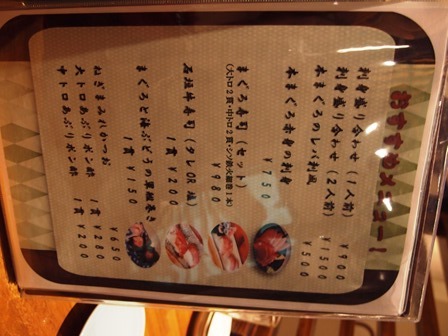 おすすめメニュー！
刺身盛り合わせ（１人前） ￥９００
刺身盛り合わせ（２人前） ￥１５００
本まぐろのレバ刺風 ￥５００
本まぐろ赤身の刺身
￥７５０
まぐろ寿司（セット）
（大トロ２貫・中トロ２貫・シソ鉄火細巻１本）
￥９８０
石垣牛寿司（タレOR塩）
１貫 ￥４００
まぐろと海ぶどうの軍艦巻き
１貫 ￥１５０
ねぎまみれかつお ￥６５０
大トロあぶりポン酢 １貫 ￥２８０
中トロあぶりポン酢 １貫 ￥２００